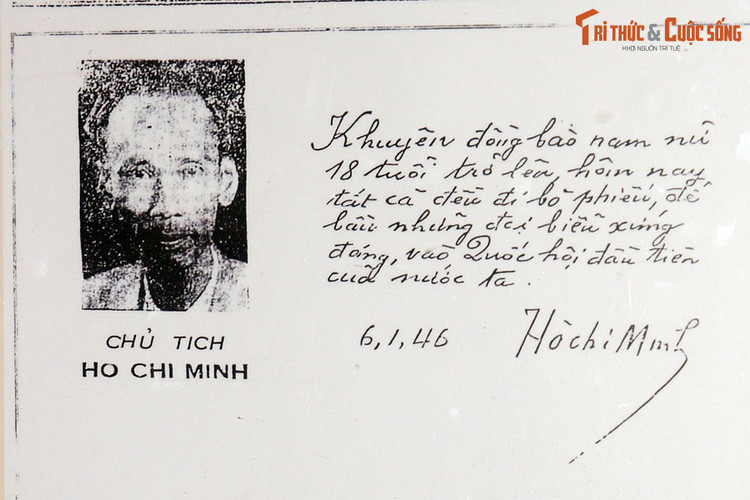 TRI THỨC & CUỘC SỐNG
KHƠI NGUỒN TRI TUỆ
Khuyên đồng bào nam nữ
18 tuổi trở lên, hôm nay
tất cả đều đi bỏ phiếu, để
bầu những đại biểu xứng
đáng, vào Quốc hội đầu tiên
của nước ta.
6.1.46
Hồ Chí Minh
CHỦ TICH
HO CHI MINH